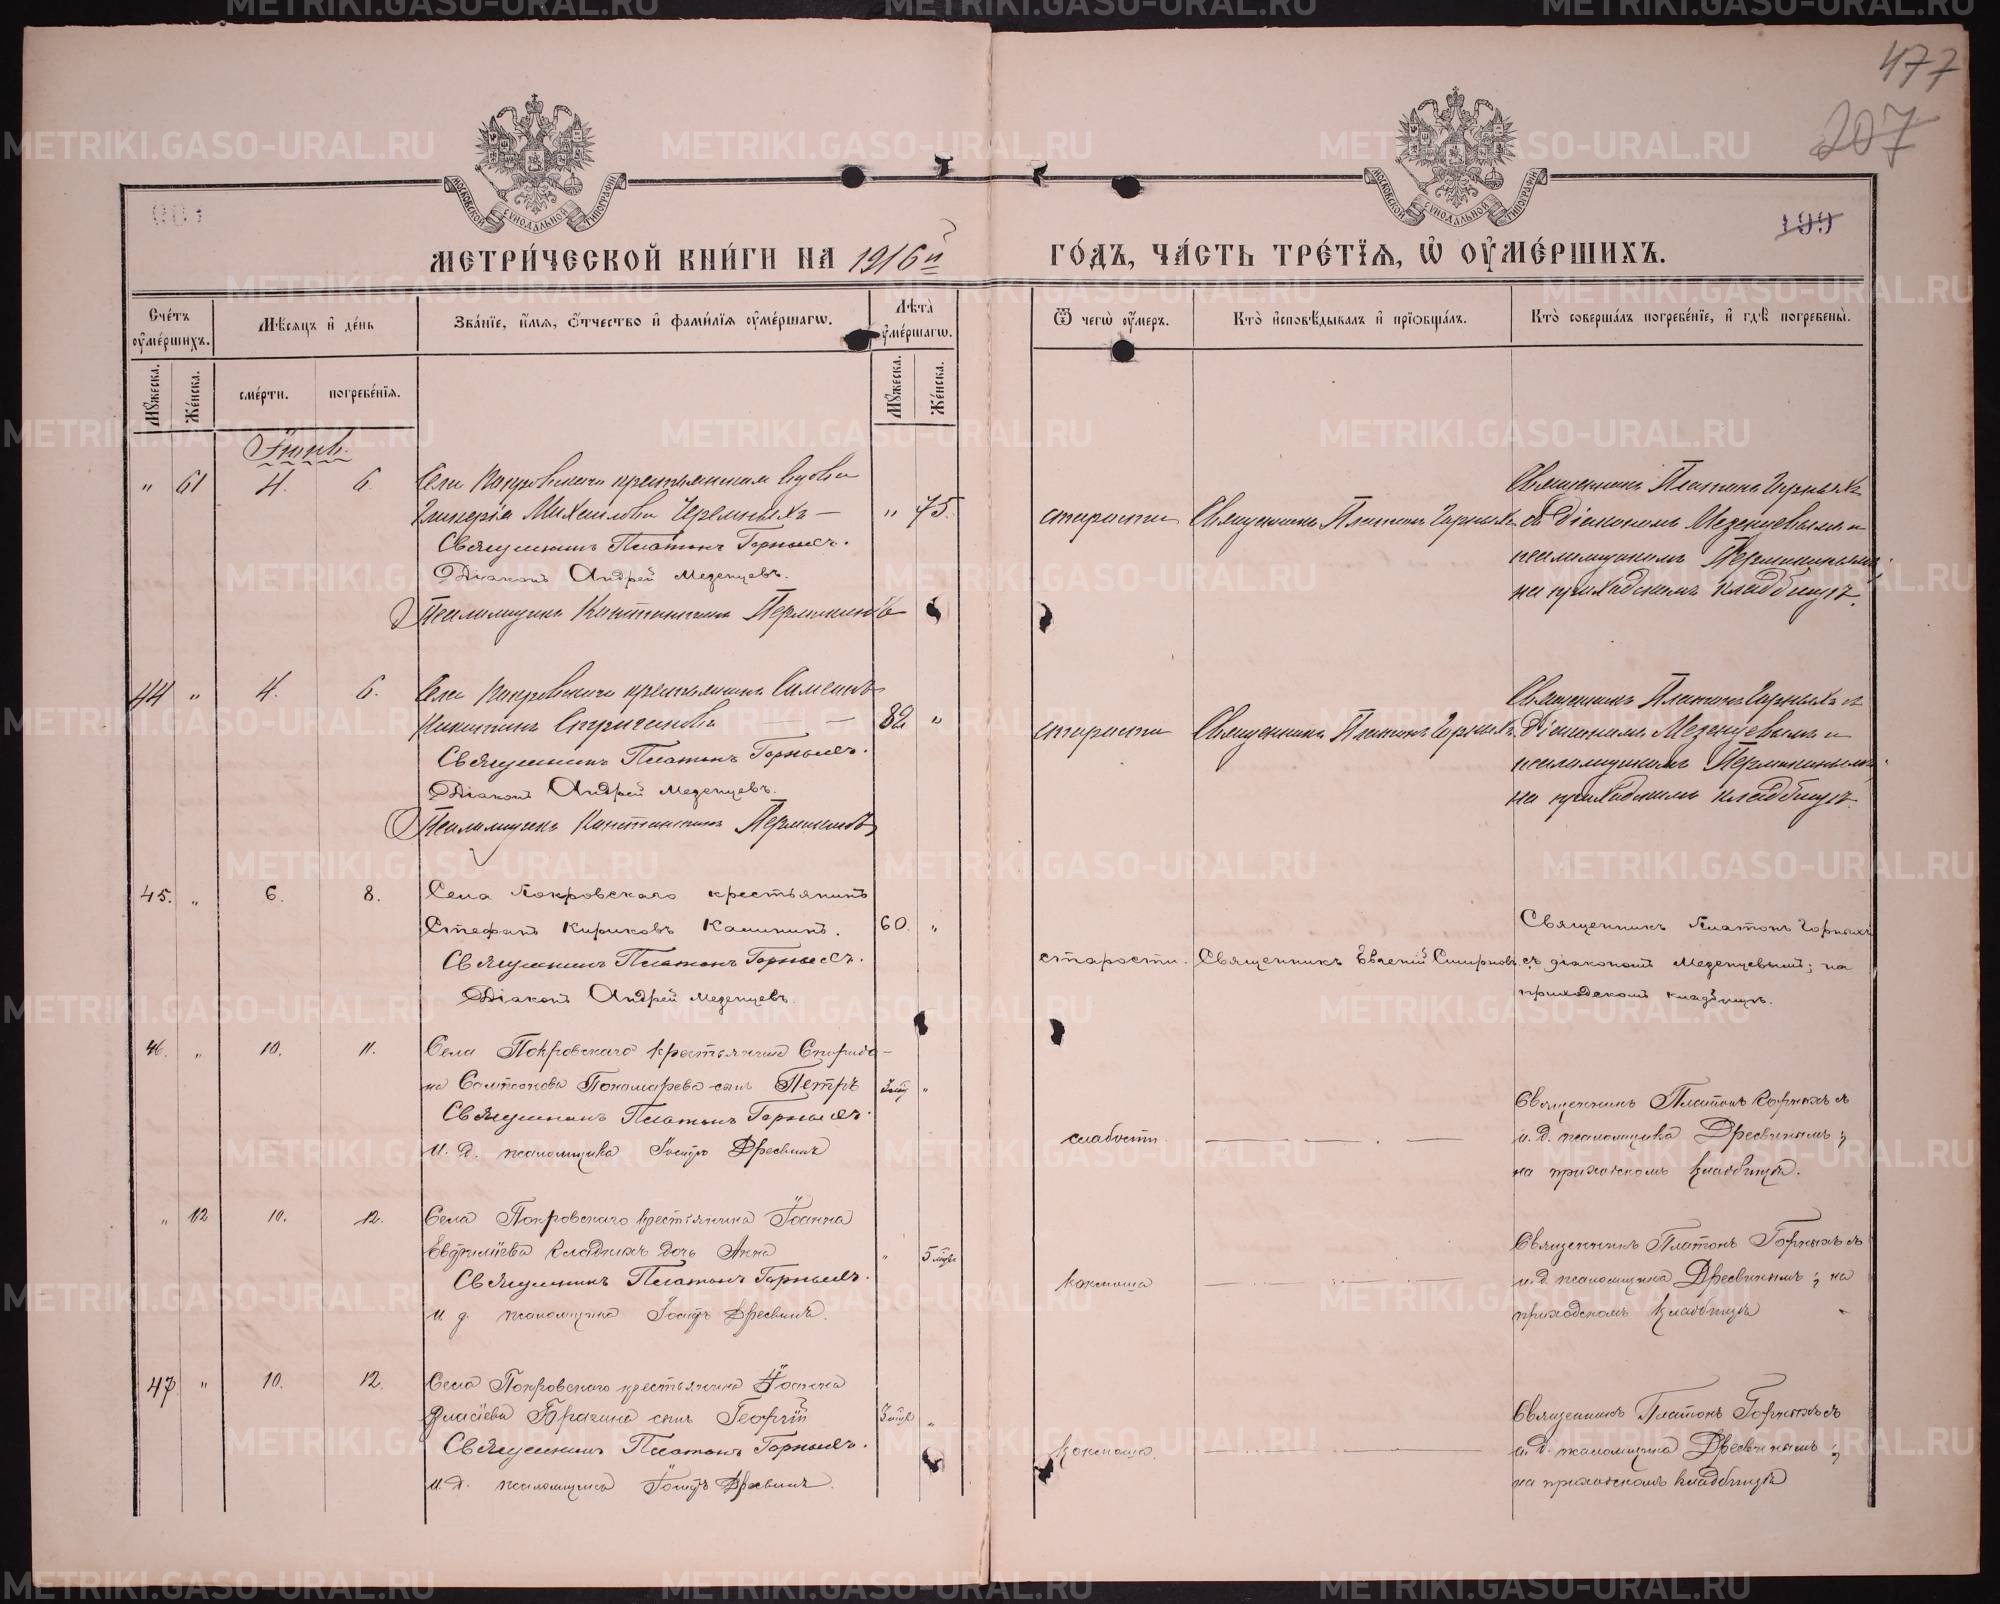 477
207
199
МОСКОВСКОЙ СѴНОДАЛЬНОЙ ТИПОГРАФИИ
МОСКОВСКОЙ СѴНОДАЛЬНОЙ ТИПОГРАФИИ
МЕТРИ́ЧЕСКОЙ КНИ́ГИ НА 1916й ГО́ДЪ, ЧА́СТЬ ТРЕ́ТІЯ, Ѡ ОУ҆МЕ́РШИХЪ.
Сче́тъ оу҆ме́ршихъ.
Мѣ́сяцъ и҆ де́нь
Зва́нїе, и҆́мя, ѻ҆́тчество и҆ фами́лїя оу҆ме́ршагѡ.
Лѣта̀ оу҆ме́ршагѡ.
Ѿ чегѡ̀ оу҆́меръ.
Кто̀ и҆сповѣ́дывалъ и҆ прїѡбща́лъ.
Кто̀ соверша́лъ погребе́нїе, и҆ гдѣ̀ погребены̀.
Мꙋ́жеска.
Же́нска.
сме́рти.
погребе́нїя.
Мꙋ́жеска.
Же́нска.
Іюнь.
" 61 4. 6. Села Покровскаго крестьянская вдова
Гликерія Михаилова Черемныхъ — " 75.
Священникъ Платонъ Горныхъ.
Діаконъ Андрей Мезенцевъ.
Псаломщикъ Константинъ Пермикинъ
старости Священникъ Платонъ Горныхъ
Священникъ Платонъ Горныхъ
съ діакономъ Мезенцевымъ и
псаломщикомъ Пермикинымъ
на приходскомъ кладбищѣ.
44 " 4. 6. Села Покровскаго крестьянинъ Симеонъ
Никитинъ — — 82 "
Священникъ Платонъ Горныхъ.
Діаконъ Андрей Мезенцевъ.
Псаломщикъ Константинъ Пермикинъ
старости Священникъ Платонъ Горныхъ
Священникъ Платонъ Горныхъ съ
Діакономъ Мезенцевымъ и
псаломщикомъ Пермикинымъ
на приходскомъ кладбищѣ.
45. " 6. 8. Села Покровскаго крестьянинъ
Стефанъ Кириковъ Калининъ. 60. "
Священникъ Платонъ Горныхъ.
Діаконъ Андрей Мезенцевъ.
старости. Священникъ Евгеній Смирновъ.
Священникъ Платонъ Горныхъ
съ діакономъ Мезенцевымъ; на
приходскомъ кладбищѣ.
46. " 10. 11. Села Покровскаго крестьянина Спиридо-
на Сампсонова Пономарева сынъ Петръ "
Священникъ Платонъ Горныхъ.
и. д. псаломщика Іосифъ Дресвинъ
слабости.
Священникъ Платонъ Горныхъ съ
и. д. псаломщика Дресвинымъ;
на приходскомъ кладбищѣ.
" 62 10. 12. Села Покровскаго крестьянина Іоанна
Евфиміева дочь Анна "
Священникъ Платонъ Горныхъ.
и д. псаломщика Іосифъ Дресвинъ.
коклюша
Священникъ Платонъ Горныхъ съ
и. д. псаломщика Дресвинымъ; на
приходскомъ кладбищѣ
47 " 10. 12. Села Покровскаго крестьянина Іоанна
Власіева Брагина сынъ Георгій "
Священникъ Платонъ Горныхъ.
и. д. псаломщика Іосифъ Дресвинъ.
коклюша.
Священникъ Платонъ Горныхъ съ
и. д. псаломщика Дресвинымъ;
на приходскомъ кладбищѣ
METRIKI.GASO-URAL.RU